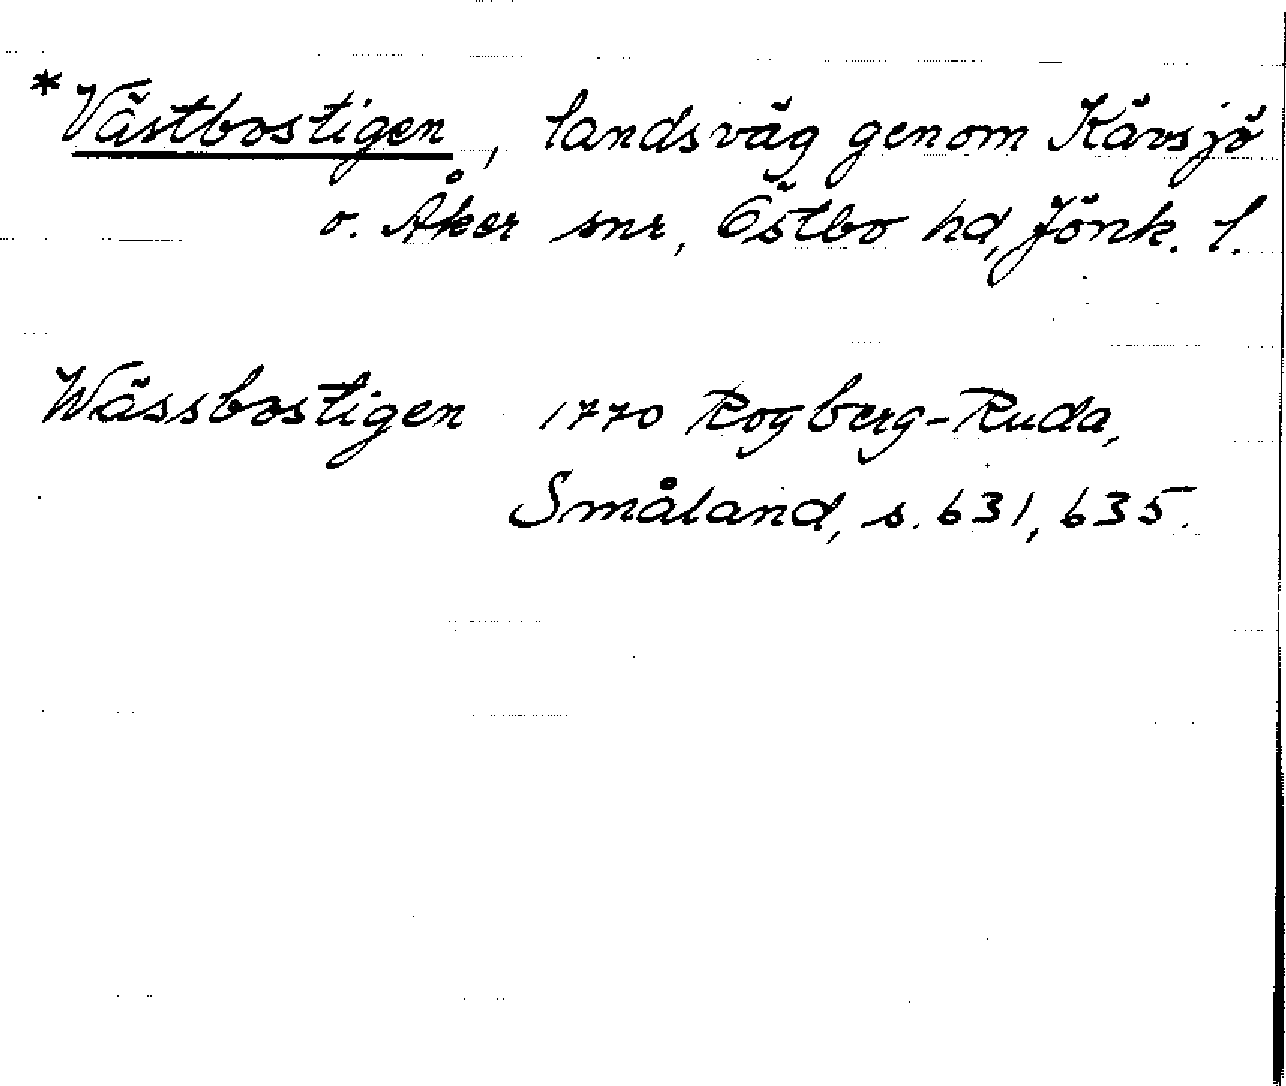 *Västbostigen, landsväg genom Kävsjö
o. Åker snr, Östbo hd, Jönk. l.
Wässbostigen 1770 Rogberg-Ruda,
Småland, s. 631, 635.